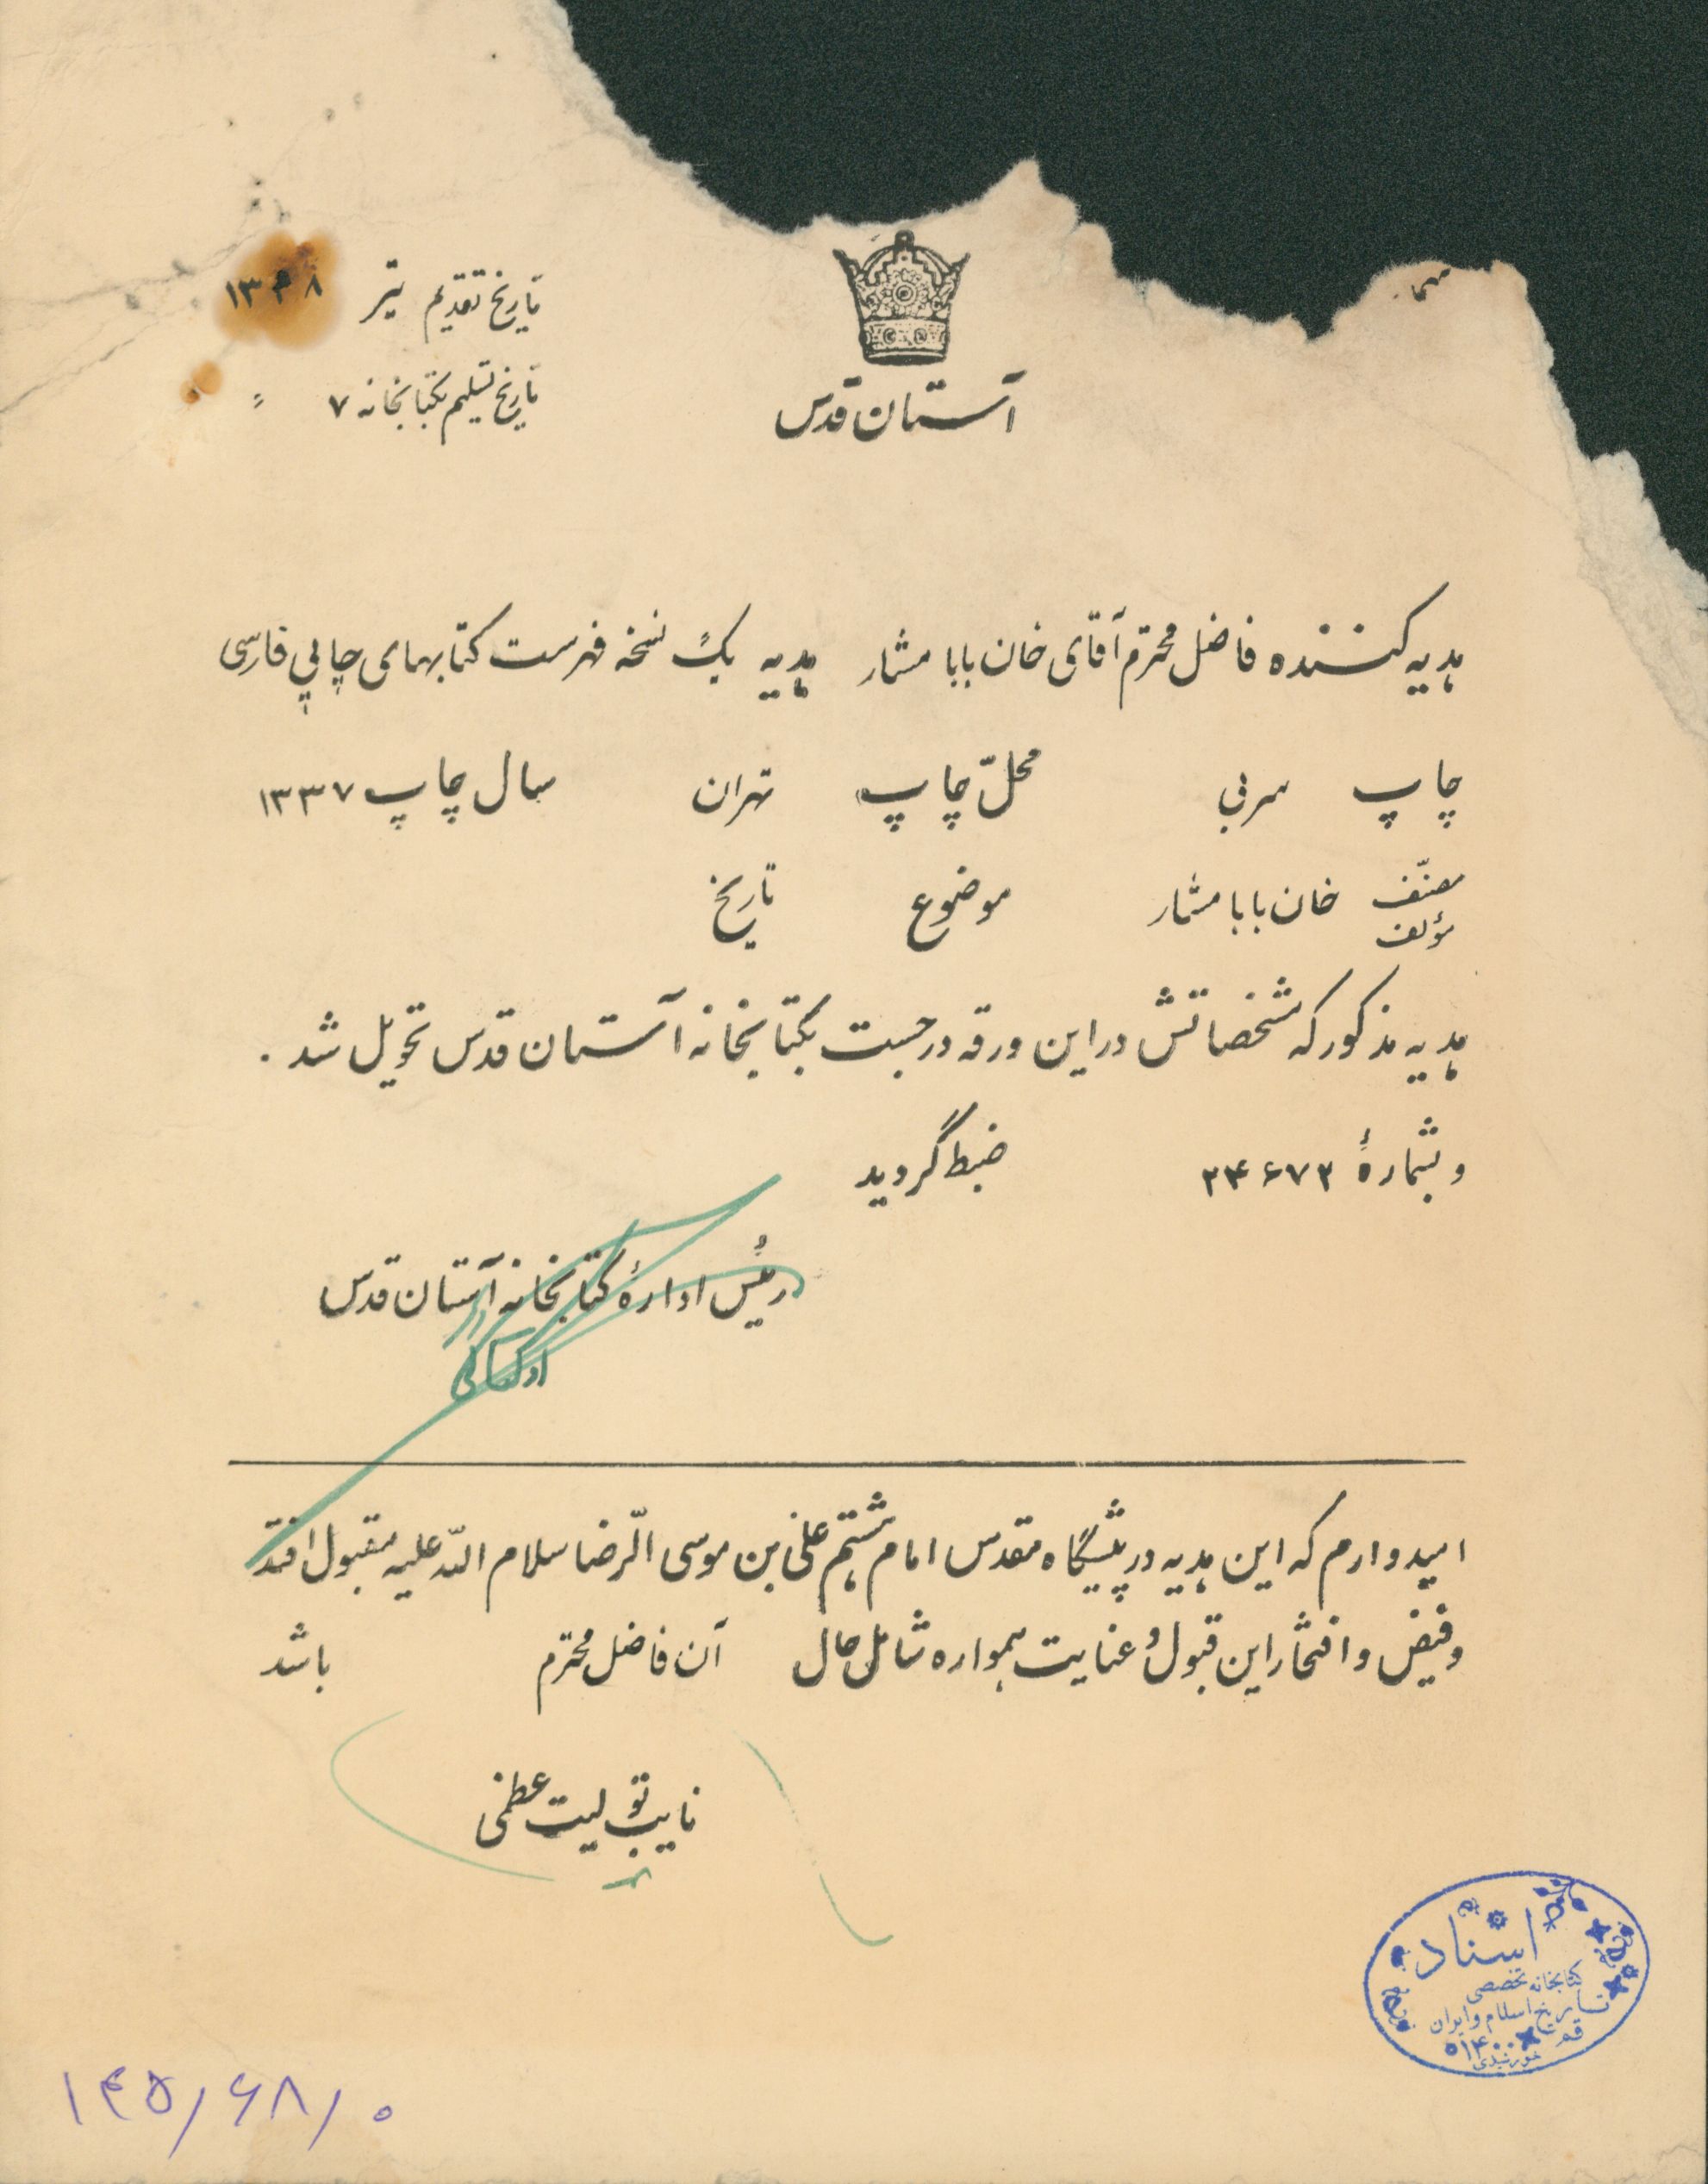 آستان قدس
تاریخ تقدیم تیر ۱۳۳۸
تاریخ تسلیم بکتابخانه ۷ "
هدیه کننده فاضل محترم آقای خان بابا مشار هدیه یک نسخه فهرست کتابهای چاپی فارسی
چاپ سربی محلّ چاپ تهران سال چاپ ۱۳۳۷
مصنّف خان بابا مشار موضوع تاریخ
مؤلف
هدیه مذکور که مشخصاتش در این ورقه درجست بکتابخانه آستان قدس تحویل شد .
و بشمارهٔ ۲۴۶۷۲ ضبط گردید
رئیس ادارهٔ کتابخانه آستان قدس
امیدوارم که این هدیه در پیشگاه مقدس امام هشتم علی بن موسی الرّضا سلام اللّه علیه مقبول افتد
و فیض و افتخار این قبول و عنایت همواره شامل حال آن فاضل محترم باشد
نایب تولیت عظمی
اسناد
کتابخانه تخصصی
تاریخ اسلام و ایران
قم
۱۴۰۰
خورشیدی
۱۴۵/۶۸/۰